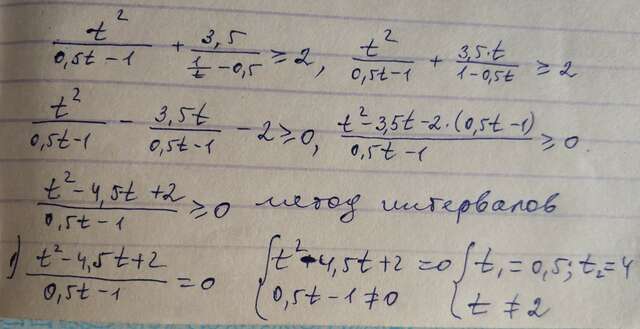 t²/(0,5t-1) + 3,5/(1/t - 0,5) ≥ 2, t²/(0,5t-1) + 3,5·t/(1-0,5t) ≥ 2
t²/(0,5t-1) - 3,5t/(0,5t-1) - 2 ≥ 0, (t²-3,5t-2·(0,5t-1))/(0,5t-1) ≥ 0.
(t²-4,5t+2)/(0,5t-1) ≥ 0 метод интервалов
1) (t²-4,5t+2)/(0,5t-1) = 0 { t²-4,5t+2=0 { t₁=0,5; t₂=4
0,5t-1≠0 t≠2